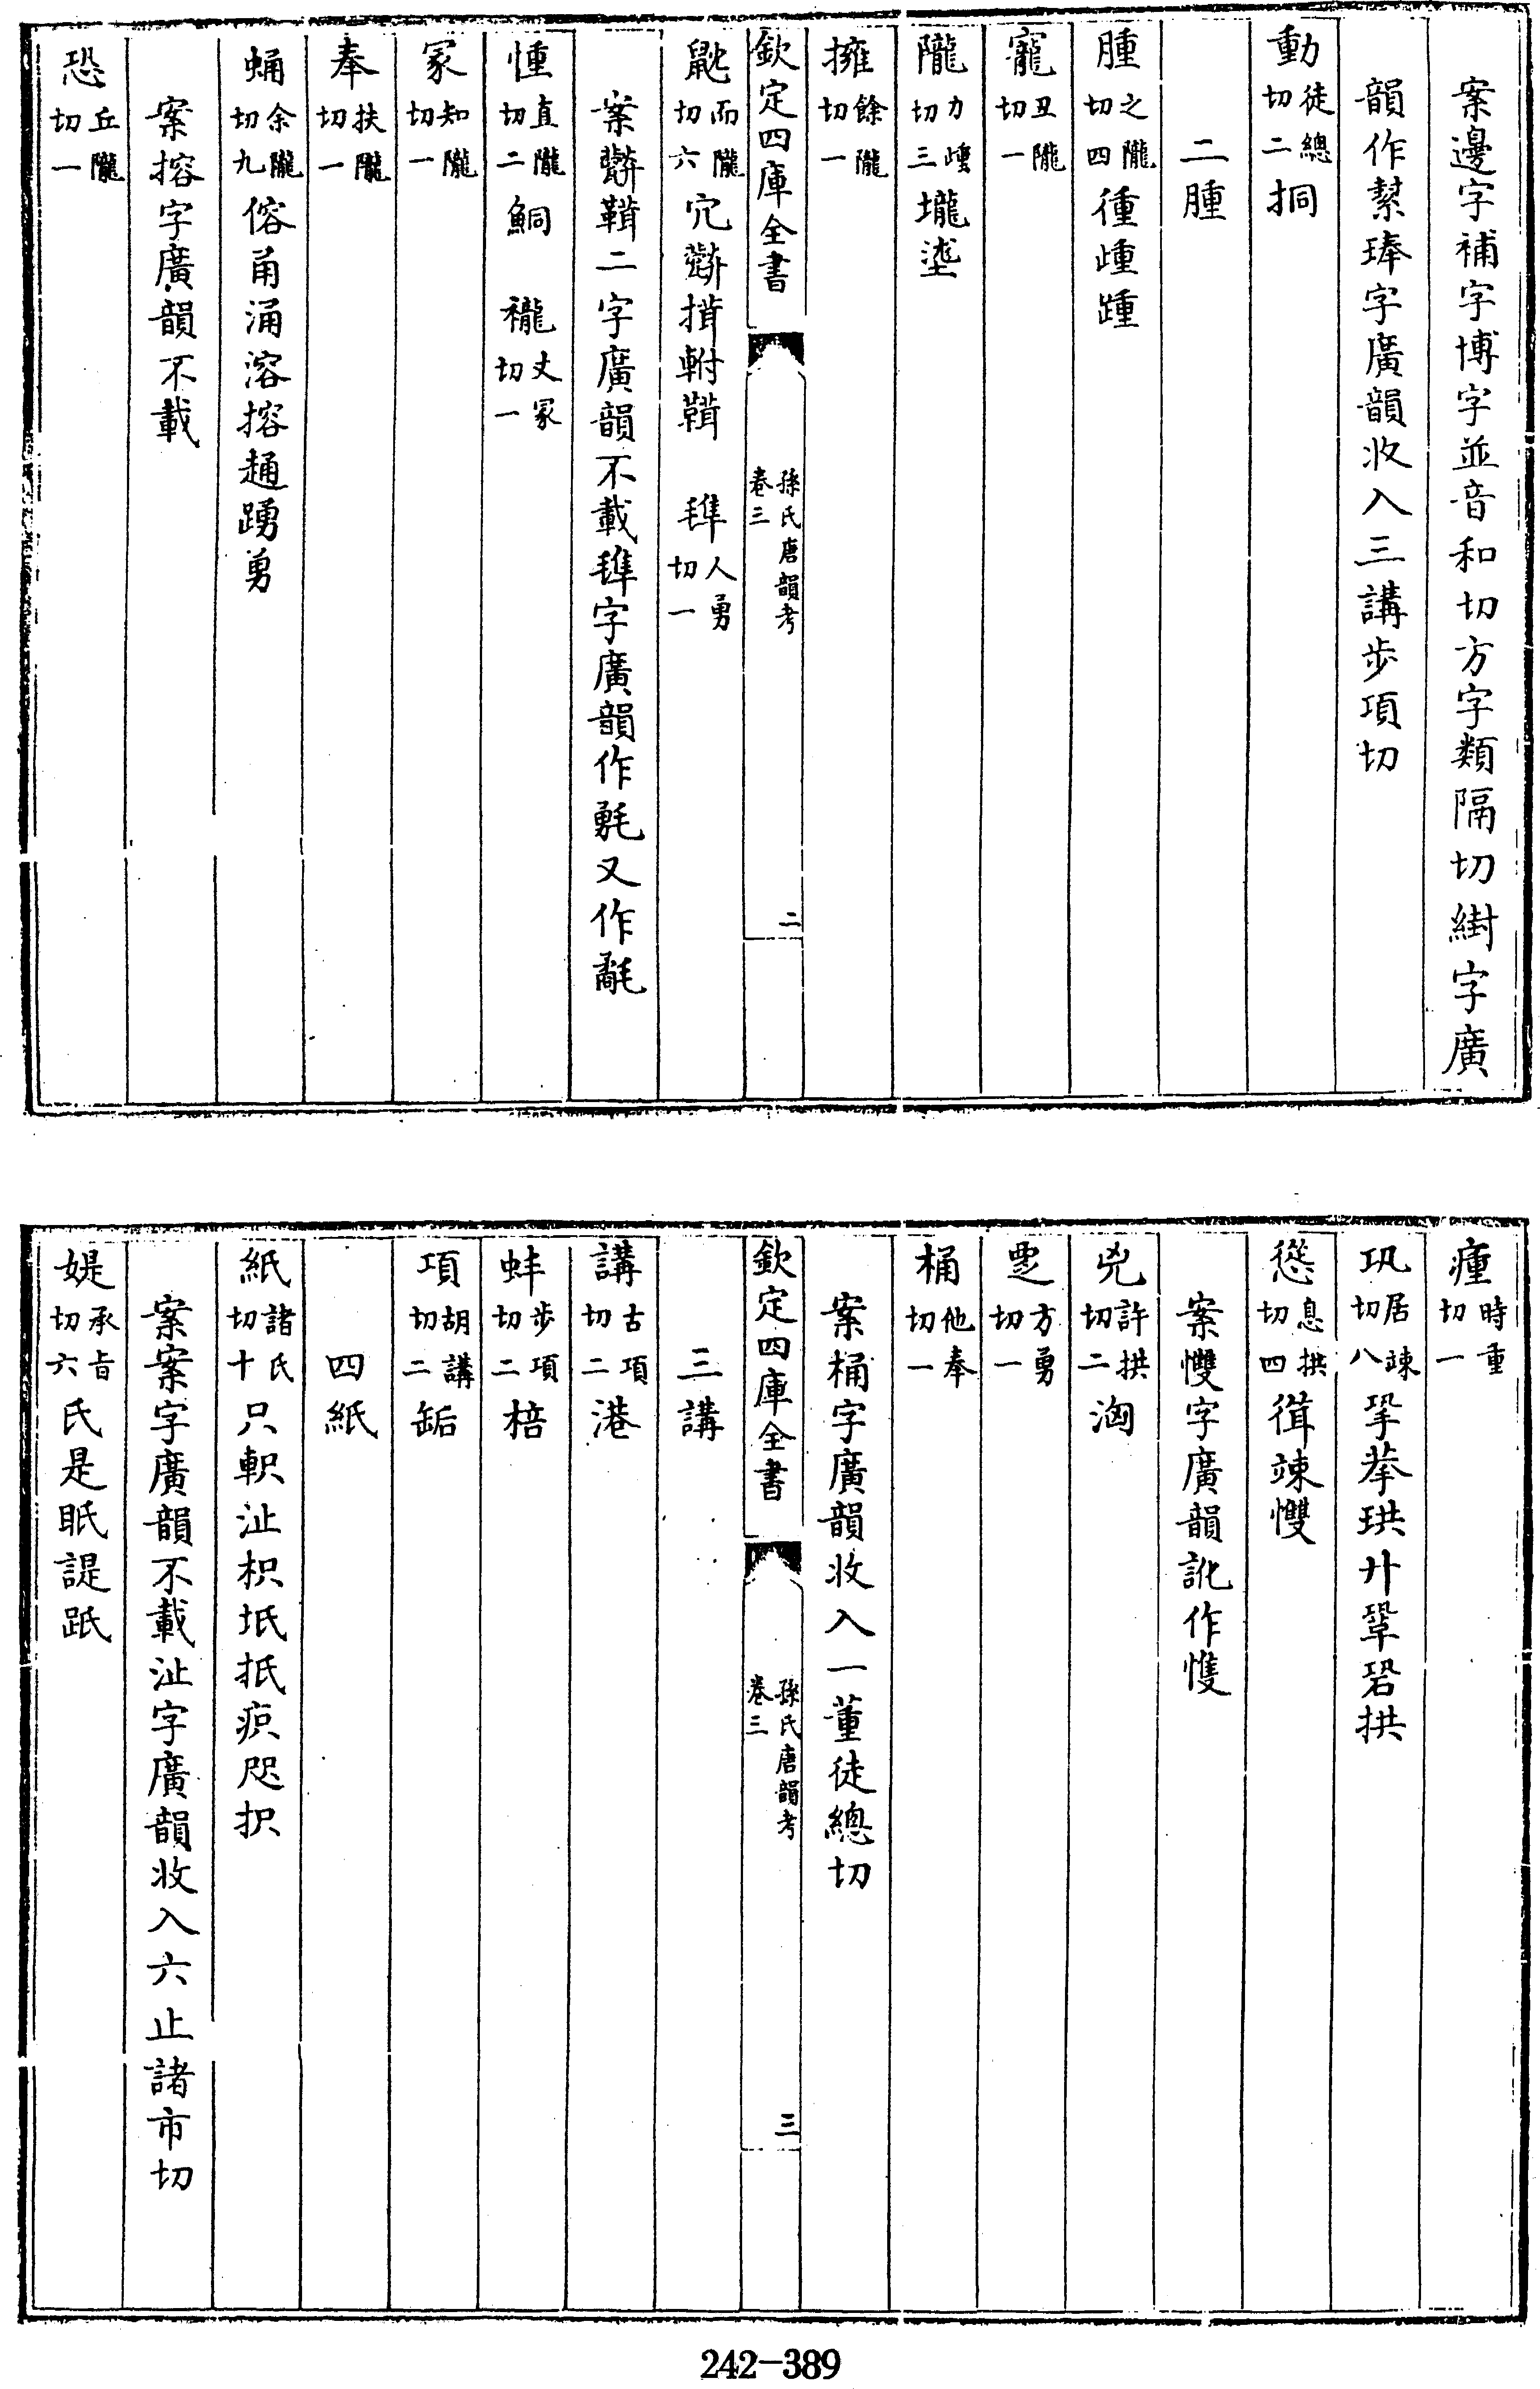 案邊字補字博字並音和切方字類隔切緔字廣
韻作絜琫字廣韻收入三講步項切
動徒總切二挏
二腫
腫之隴切四㣫歱踵
寵丑隴切一
隴力歱切三壠埊
擁餘隴切一
欽定四庫全書
孫氏唐韻考
卷三
二
而隴切六宂搑軵 人勇切一
案二字廣韻不載字廣韻作㲨又作
𢥞直隴切二鮦 襱丈冢切一
冢知隴切一
奉扶隴切一
蛹余隴切九俗甬涌溶搈踊踴勇
案搈字廣韻不載
恐丘隴切一
瘇時重切一
巩居竦切八㧬拲珙廾鞏䂬拱
慫息拱切四𢔋竦㩳
案㩳字廣韻訛作愯
兇許拱切二洶
覂方勇切一
桶他奉切一
案桶字廣韻收入一董徒總切
欽定四庫全書
孫氏唐韻考
卷三
三
三講
講古項切二港
蚌步項切二棓
項胡講切二缿
四紙
紙諸氏切十只軹沚枳坻抵疻咫抧
案案字廣韻不載沚字廣韻收入六止諸市切
媞承旨切六氏是眂諟䟗
242-389